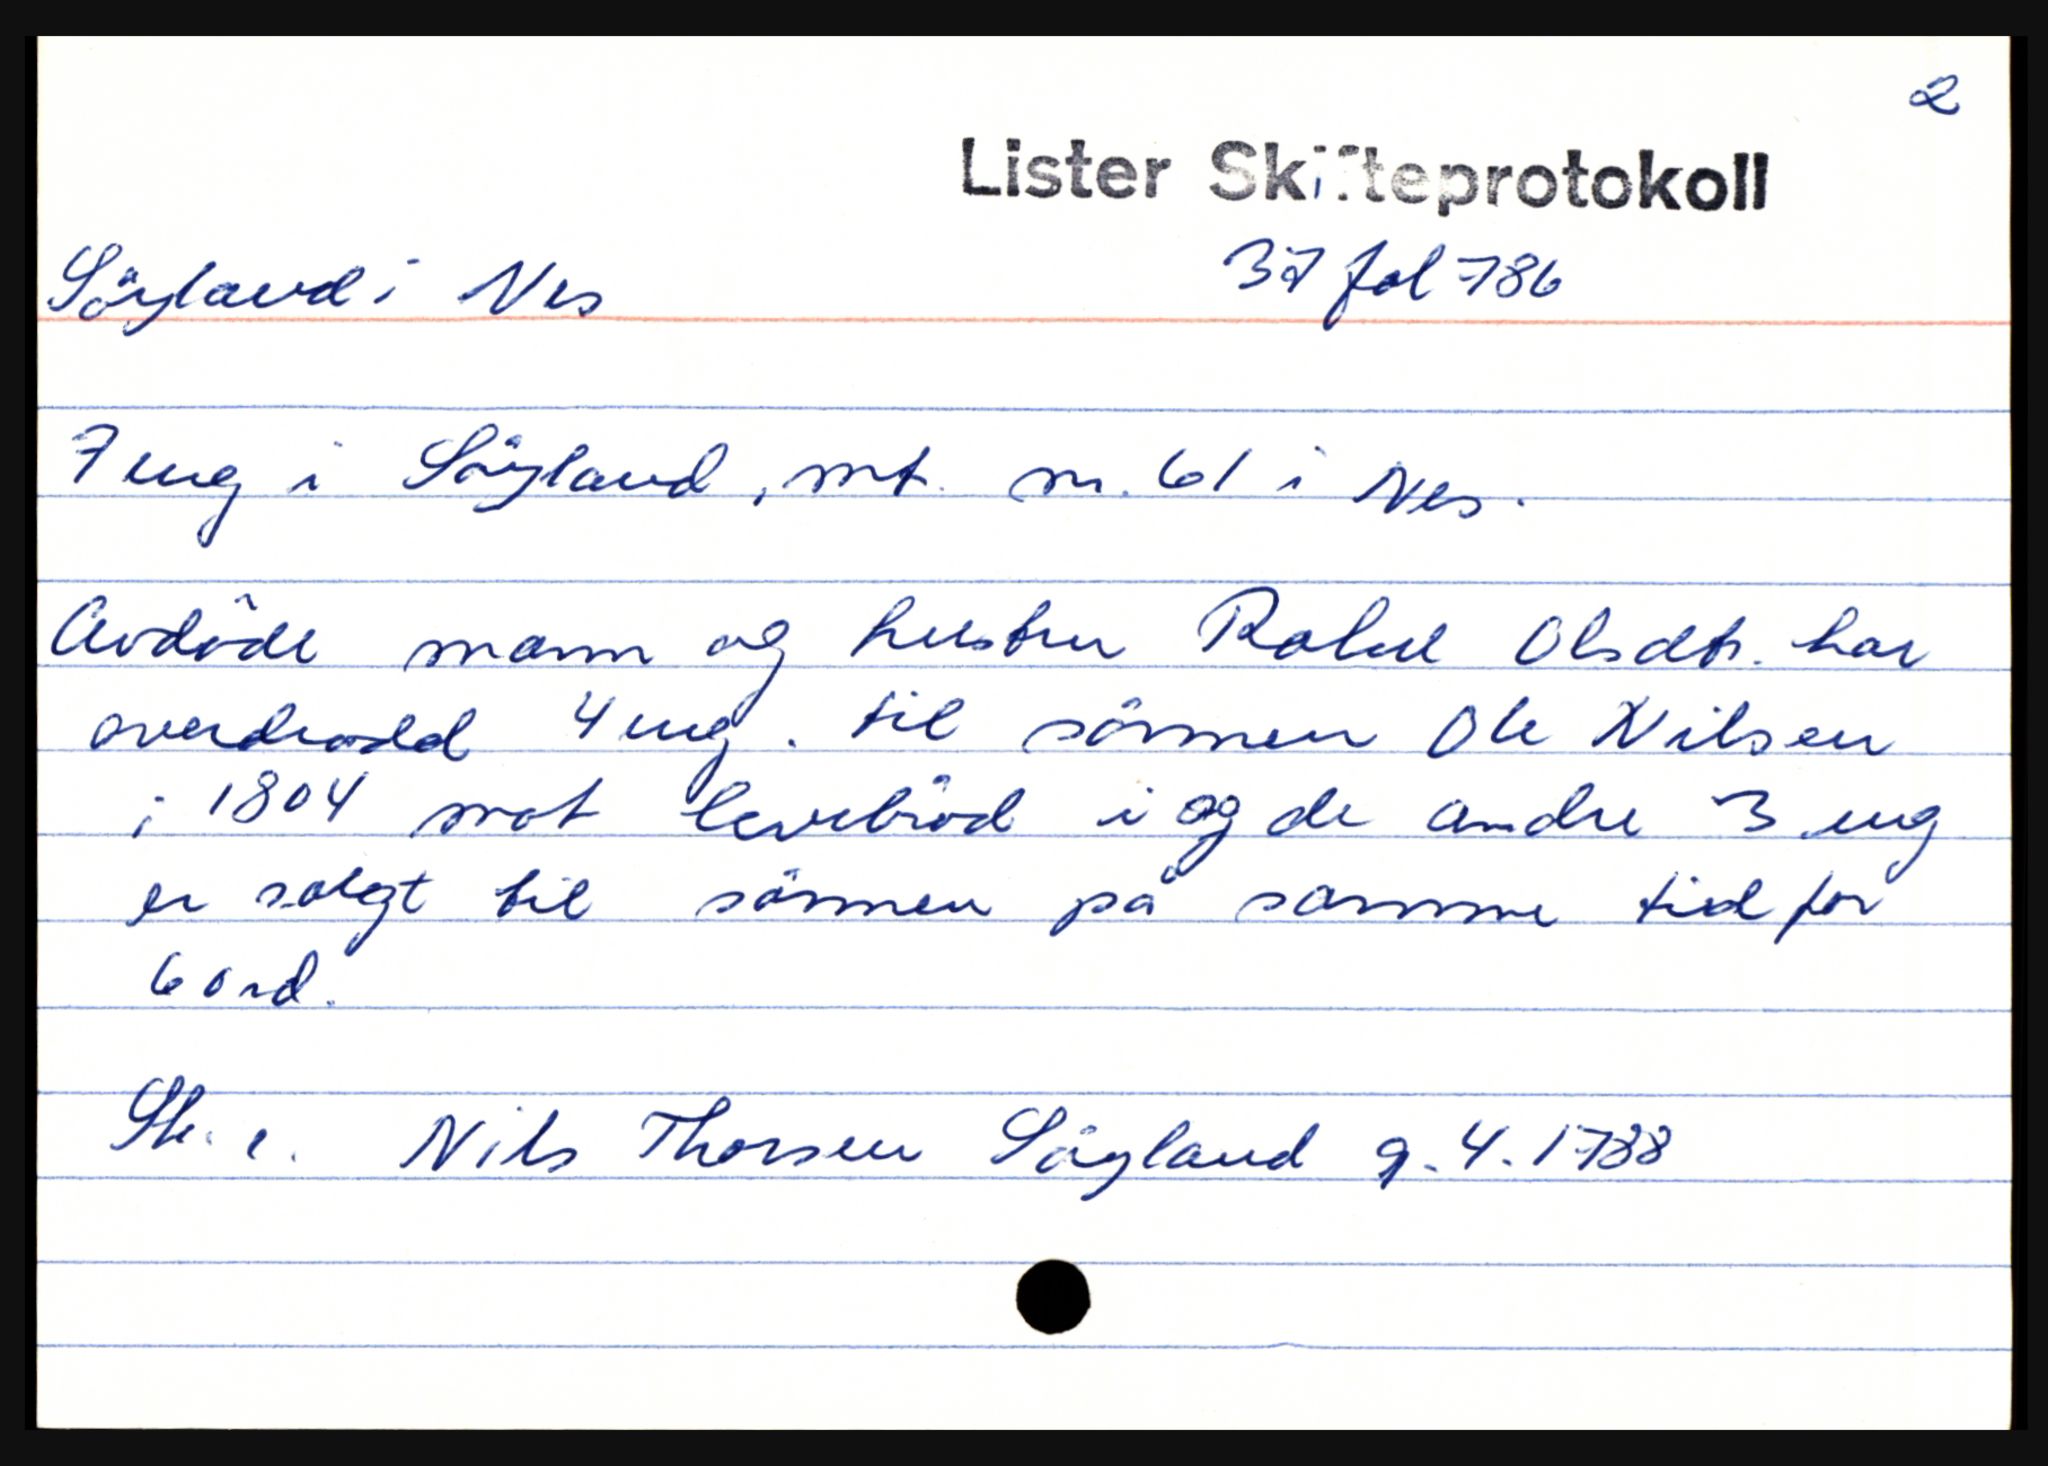 2
Lister Skifteprotokoll
Söyland i Nes
37 fol 786
7 eng i Söyland, mt. nr. 61 i Nes.
Avdöde mann og hustru Rakel Olsdtr. har
overdradd 4 eng. til sönnen Ole Nilsen
i 1804 mot levebröd i og de andre 3 eng
er solgt til sönnen på samme tid for
60 rd.
Sk. e. Nils Thorsen Söyland 9.4.1788